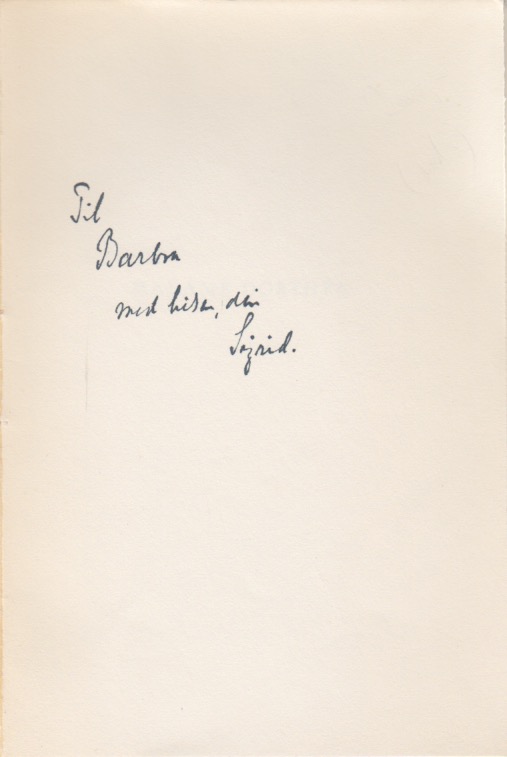 Til
Barbra
med helsen, din
Sigrid.